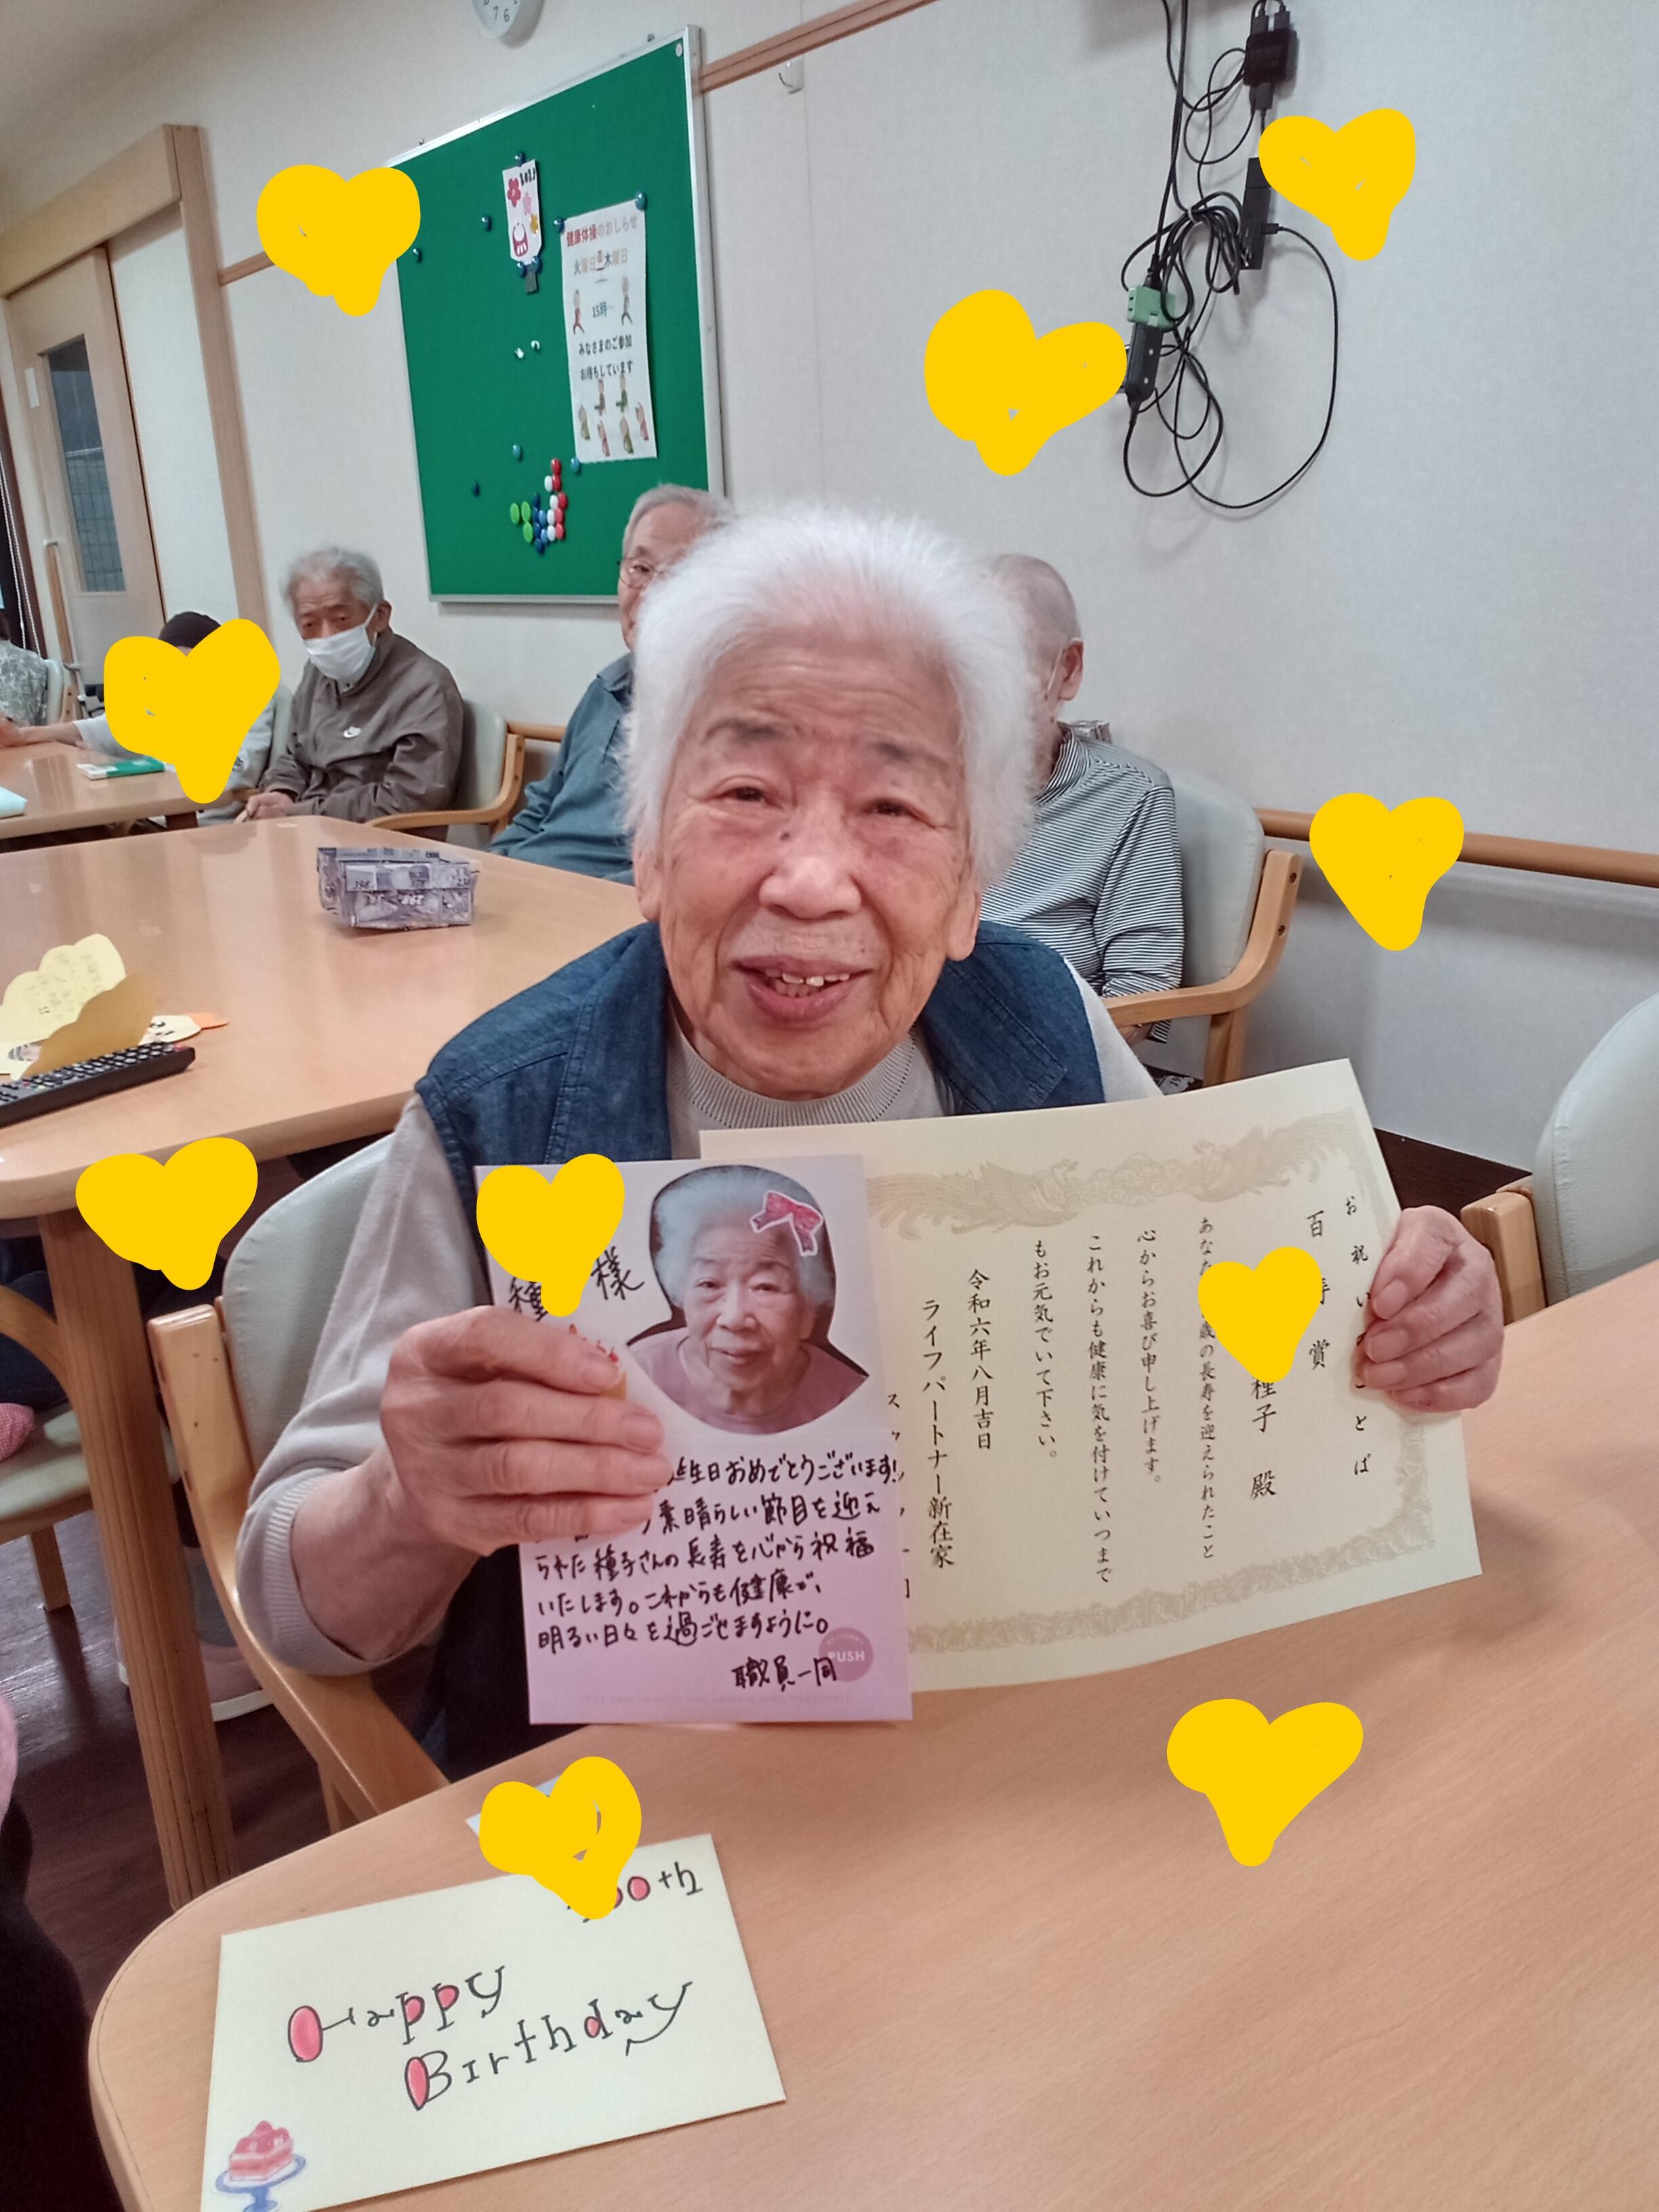 健康体操のおしらせ
火曜日 木曜日
15時～
みなさまのご参加
お待ちしています
398
様
生日おめでとうございます!
素晴らしい節目を迎え
られた種子さんの長寿を心から祝福
いたします。これからも健康で、
明るい日々を過ごせますように。
職員一同
PUSH
百 賞
種子 殿
あなた 歳の長寿を迎えられたこと
心からお喜び申し上げます。
これからも健康に気を付けていつまで
もお元気でいて下さい。
令和六年八月吉日
ライフパートナー新在家
00th
Happy
Birthday